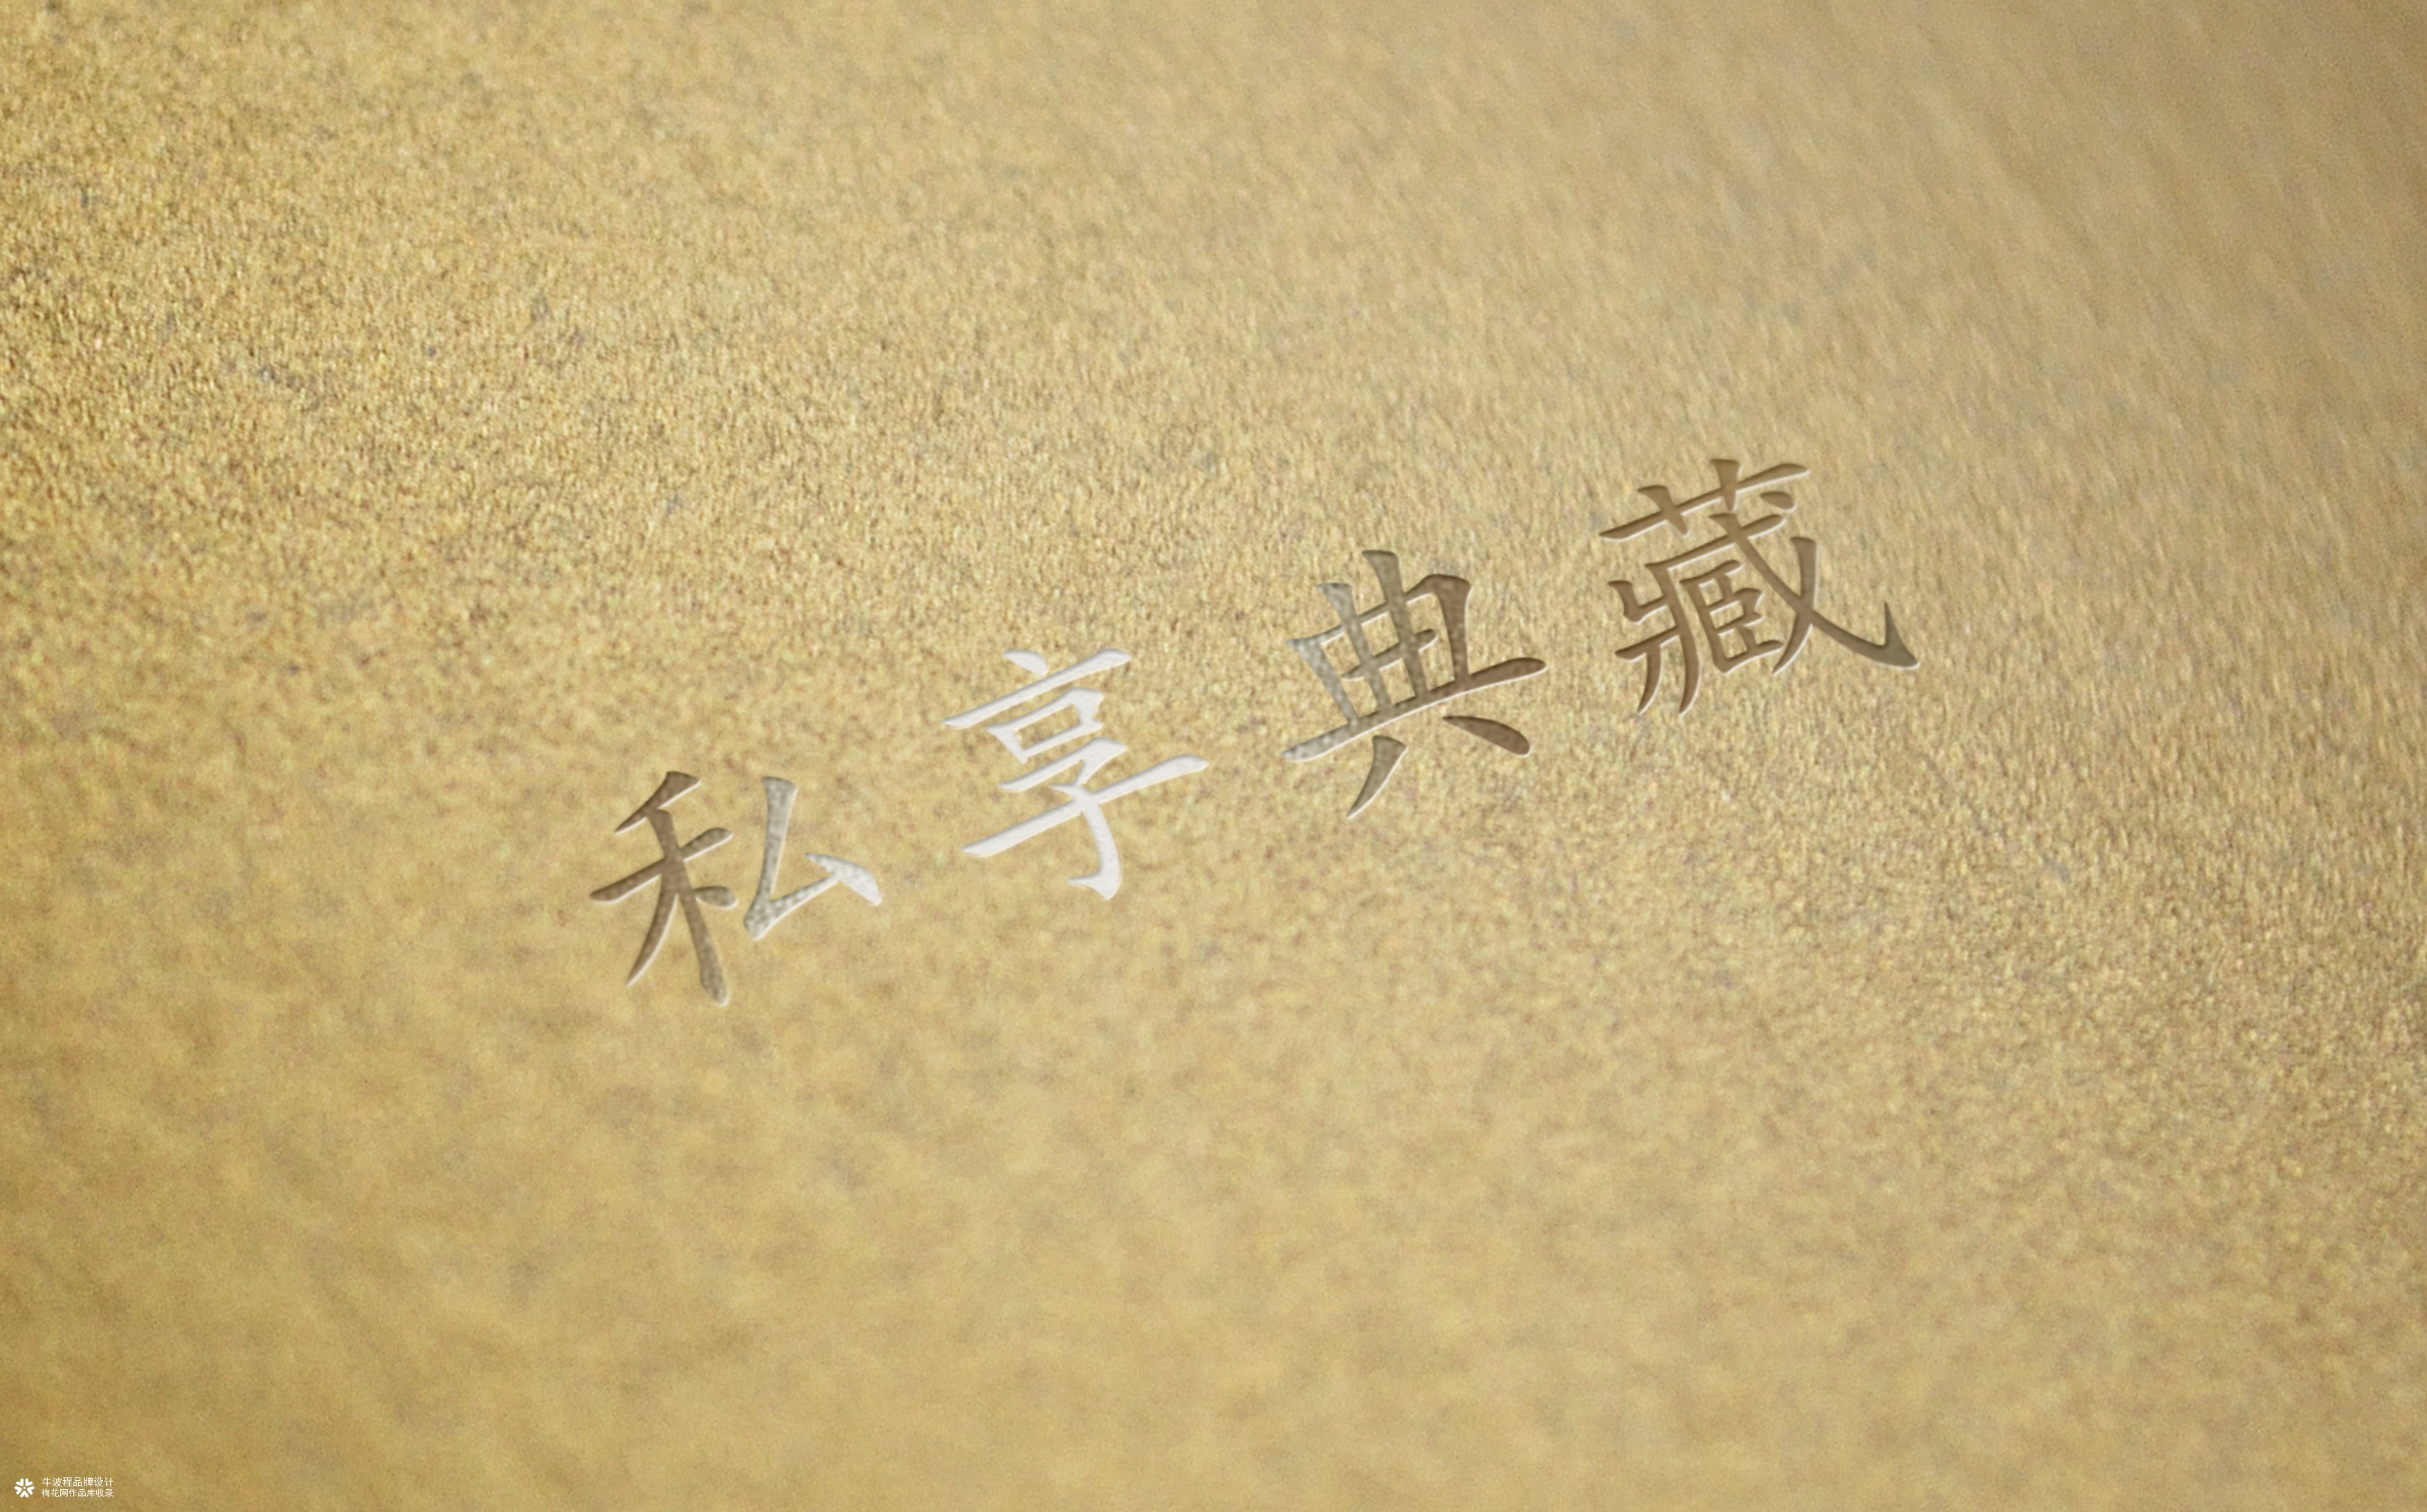 私享典藏
牛波程品牌设计
梅花网作品库收录